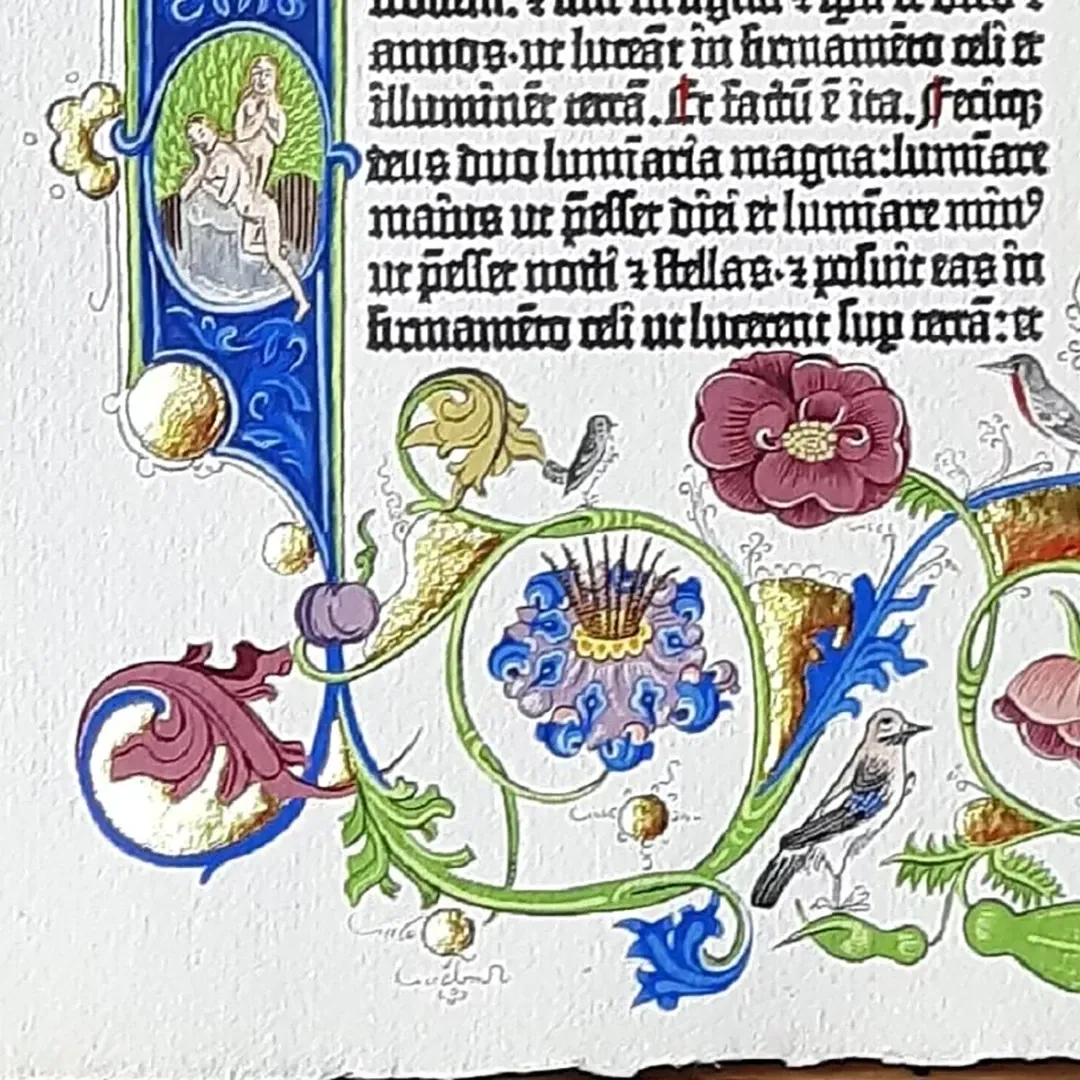 annos·ut luceāt in firmamēto celi et
illuminēt terrā. Et factū ē ita. Fecitqꝫ
deus duo lumīaria magna:lumīare
maius ut p̄esset diei et lumīare minꝰ
ut p̄esset nocti ⁊ stellas·⁊ posuit eas in
firmamēto celi ut lucerent suꝑ terrā: et